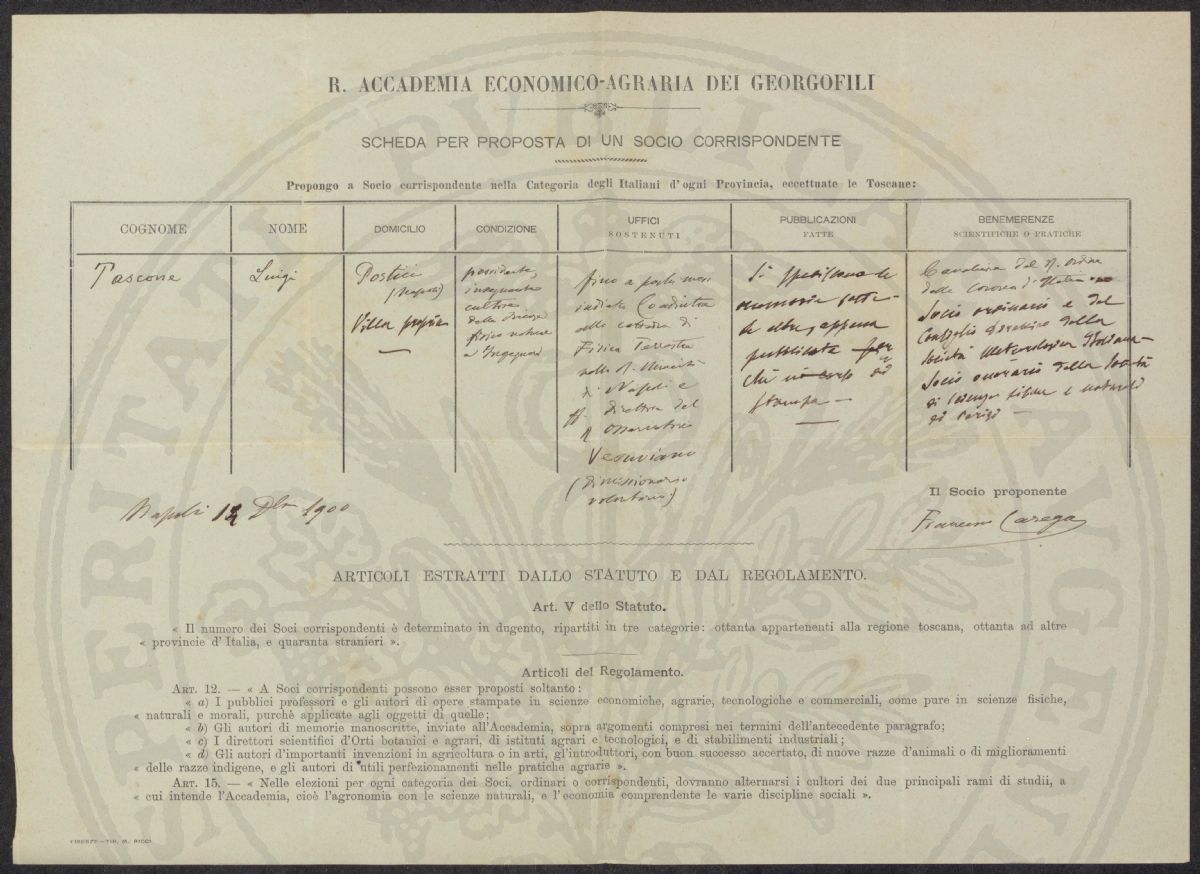 R. ACCADEMIA ECONOMICO-AGRARIA DEI GEORGOFILI
SCHEDA PER PROPOSTA DI UN SOCIO CORRISPONDENTE
Propongo a Socio corrispondente nella Categoria degli Italiani d'ogni Provincia, eccettuate le Toscane:
COGNOME
NOME
DOMICILIO
CONDIZIONE
UFFICI
SOSTENUTI
PUBBLICAZIONI
FATTE
BENEMERENZE
SCIENTIFICHE O PRATICHE
Pascone
Luigi
Portici
(Napoli)
Villa propria
possidente,
insegnante
cultore
delle Scienze
fisico nature
e Ingegnere
fino a pochi mesi
indietro Coadiutore
alla cattedra di
Fisica Terrestre
nella R. Università
di Napoli e
ff. direttore del
R. Osservatorio
Vesuviano
(dimissionario
volontario)
Si spediscono le
memorie fatte
le altre, appena
pubblicate
stampa —
Cavaliere del R. ordine
della Corona d'Italia
Socio ordinario e del
Consiglio Direttivo della
Società Meteorologica Italiana
Socio onorario della Società
di Scienze fisiche e naturali
di Parigi —
Napoli 12 Dbre 1900
Il Socio proponente
Francesco Carega
ARTICOLI ESTRATTI DALLO STATUTO E DAL REGOLAMENTO.
Art. V dello Statuto.
« Il numero dei Soci corrispondenti è determinato in dugento, ripartiti in tre categorie: ottanta appartenenti alla regione toscana, ottanta ad altre
« provincie d'Italia, e quaranta stranieri ».
Articoli del Regolamento.
ART. 12. — « A Soci corrispondenti possono esser proposti soltanto:
« a) I pubblici professori e gli autori di opere stampate in scienze economiche, agrarie, tecnologiche e commerciali, come pure in scienze fisiche,
« naturali e morali, purchè applicate agli oggetti di quelle;
« b) Gli autori di memorie manoscritte, inviate all'Accademia, sopra argomenti compresi nei termini dell'antecedente paragrafo;
« c) I direttori scientifici d'Orti botanici e agrari, di istituti agrari e tecnologici, e di stabilimenti industriali;
« d) Gli autori d'importanti invenzioni in agricoltura o in arti, gl'introduttori, con buon successo accertato, di nuove razze d'animali o di miglioramenti
« delle razze indigene, e gli autori di utili perfezionamenti nelle pratiche agrarie ».
ART. 15. — « Nelle elezioni per ogni categoria dei Soci, ordinari o corrispondenti, dovranno alternarsi i cultori dei due principali rami di studii, a
« cui intende l'Accademia, cioè l'agronomia con le scienze naturali, e l'economia comprendente le varie discipline sociali ».
FIRENZE—TIP. M. RICCI